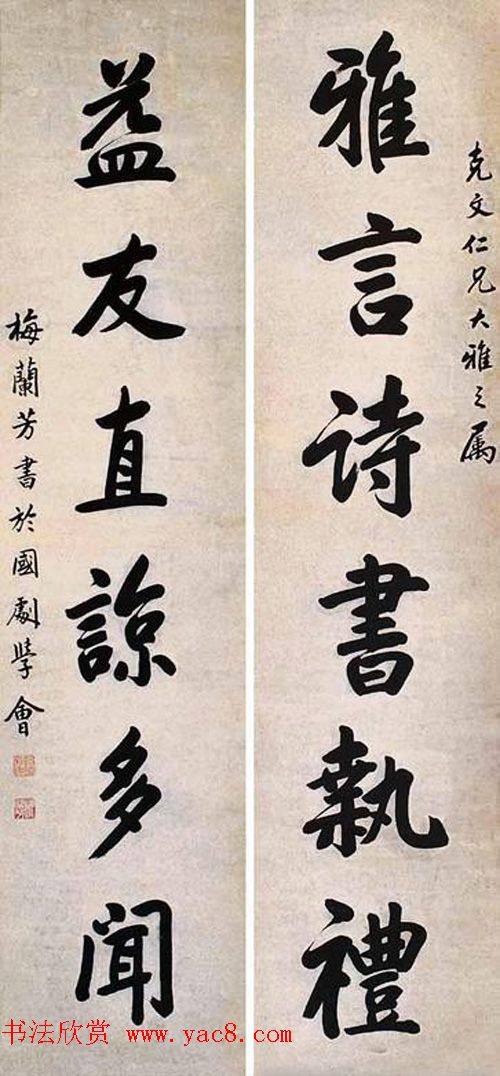 克文仁兄大雅之属
雅言诗書執禮
益友直諒多聞
梅蘭芳書於國劇學會
书法欣赏 www.yac8.com